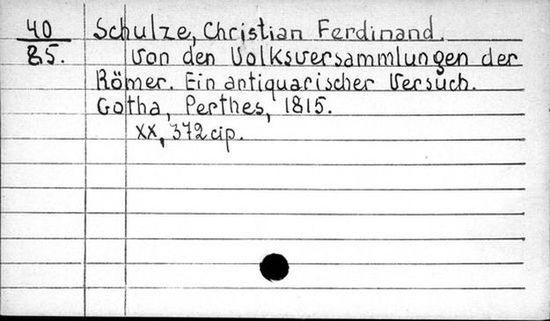 40 Schulze, Christian Ferdinand.
85. Von den Volksversammlungen der
Römer. Ein antiquarischer Versuch.
Gotha, Perthes, 1815.
XX, 372 cip.